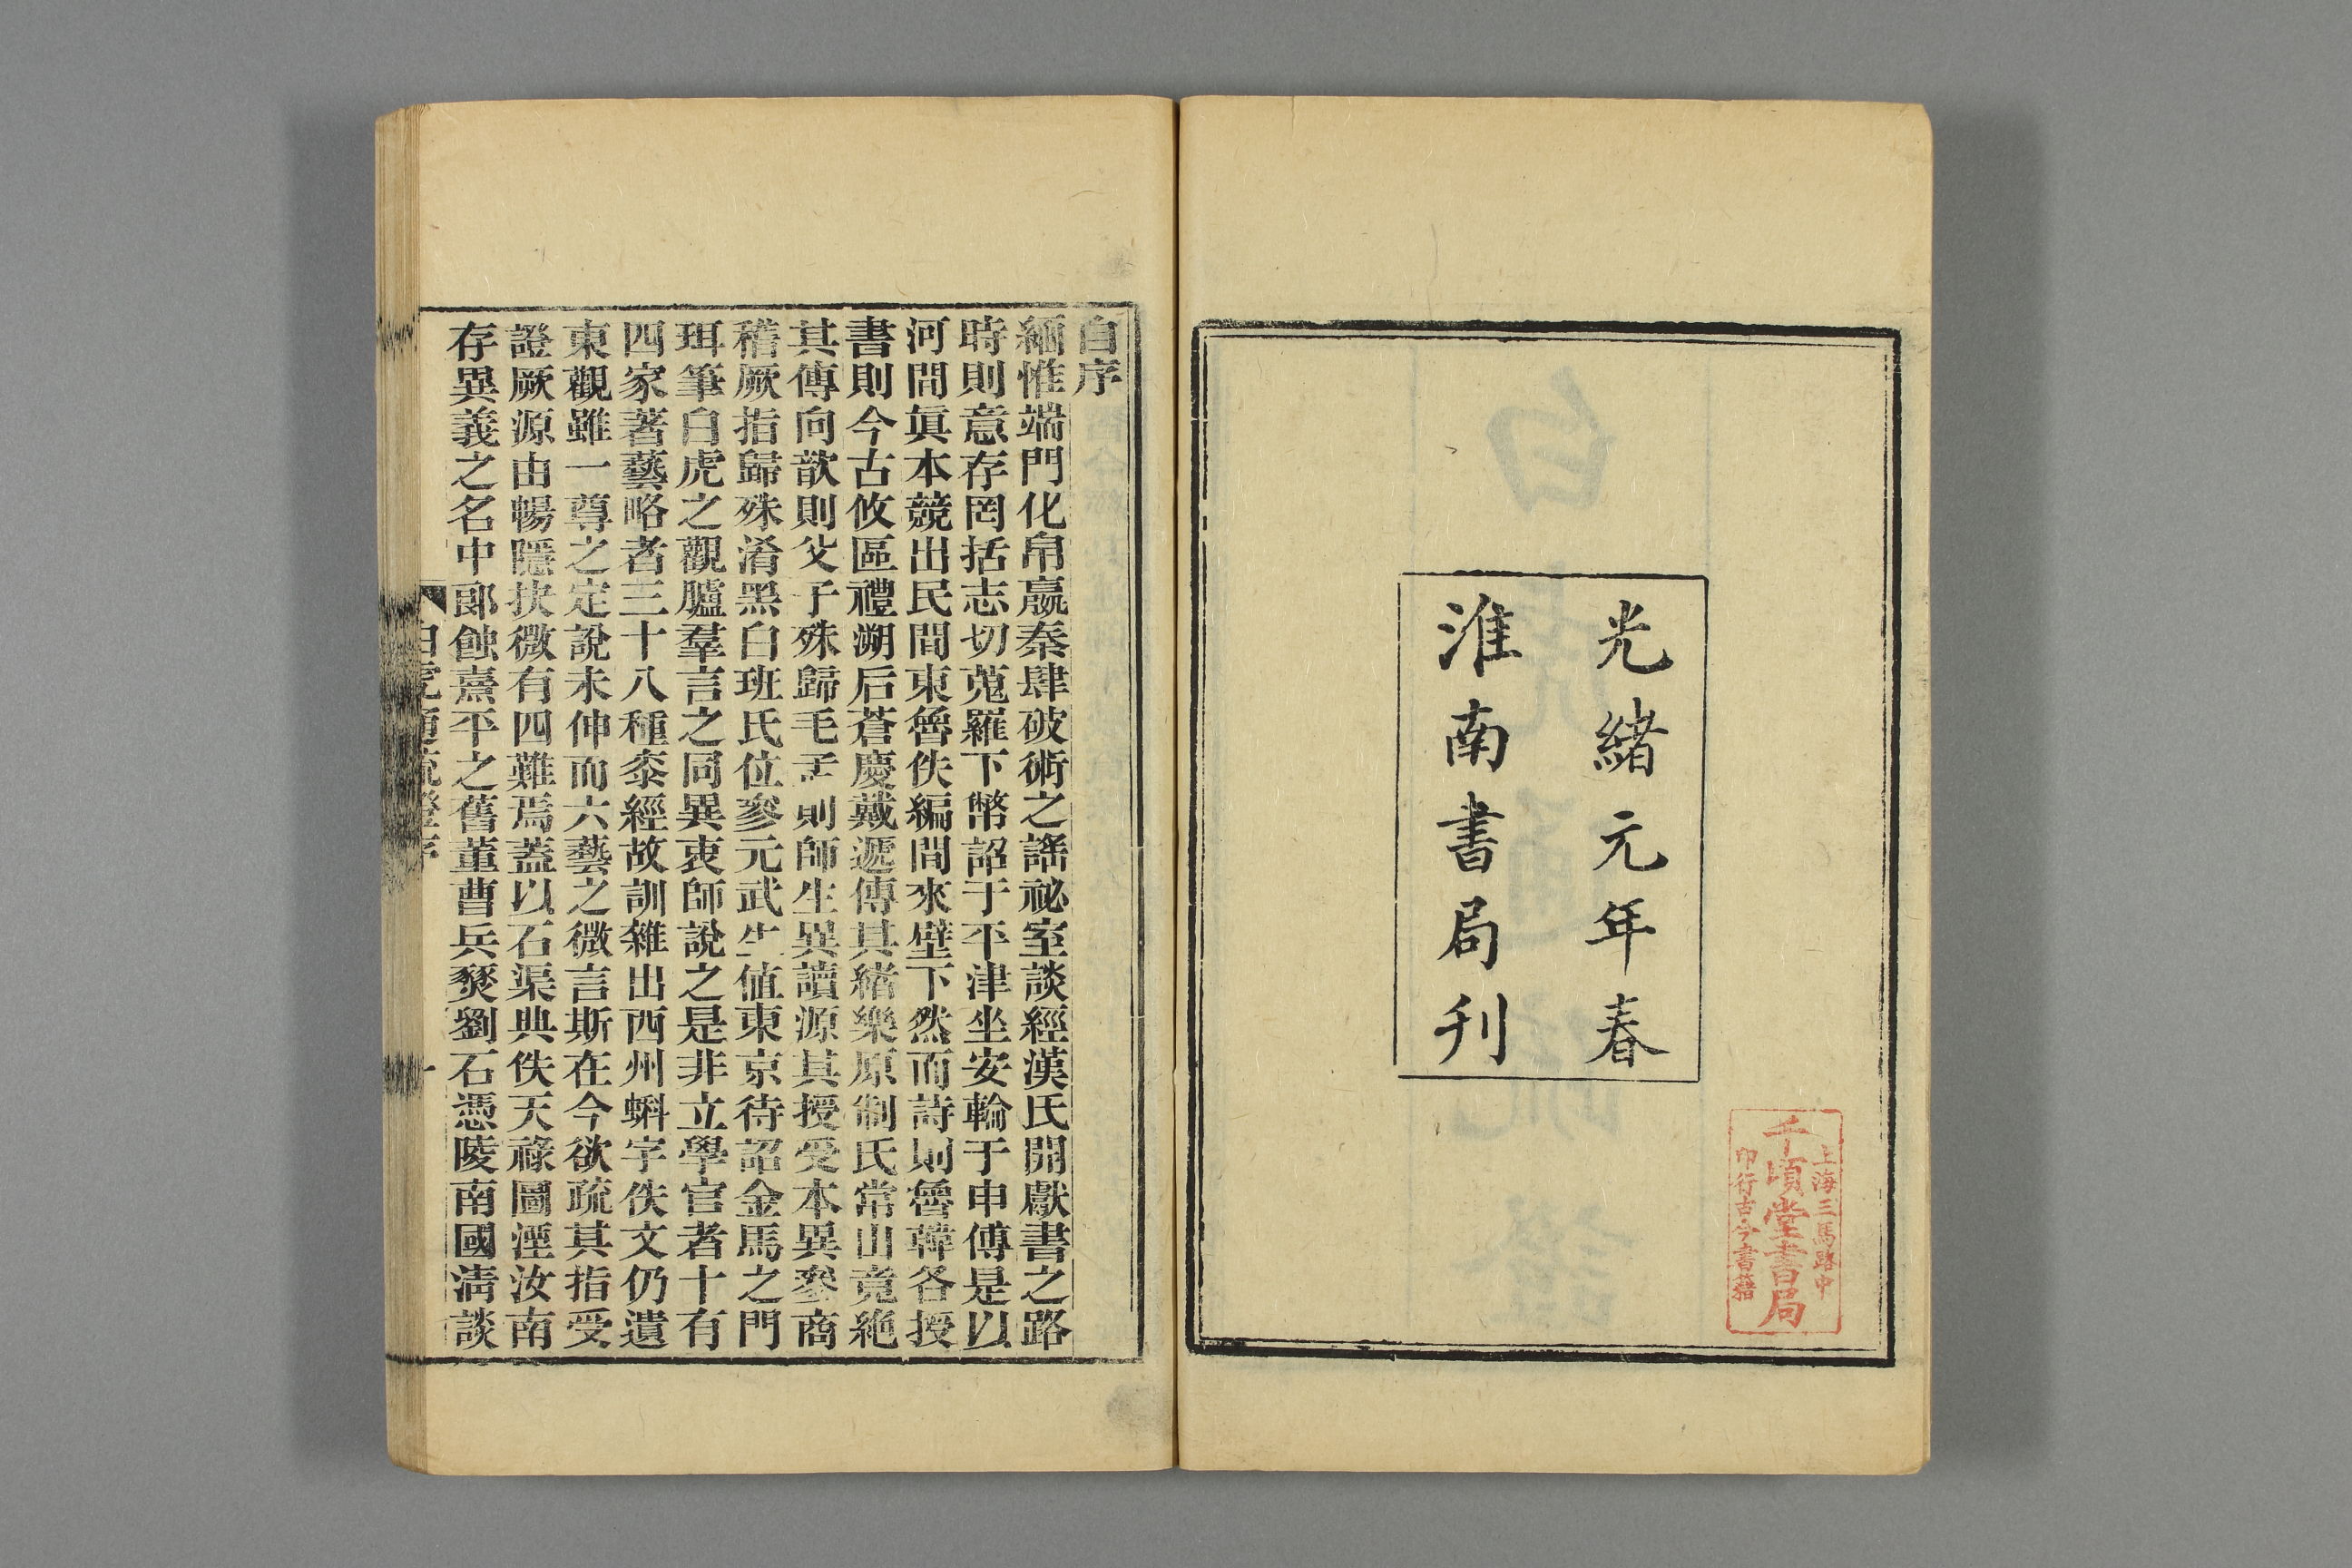 光緒元年春
淮南書局刊
上海三馬路中
千頃堂書局
印行古今書籍
自序
緬惟端門化帛嬴秦肆破術之謠祕室談經漢氏開獻書之路
時則意存罔括志切蒐羅下幣詔于平津坐安輪于申傅是以
河間眞本競出民間東魯佚編間來壁下然而詩則魯韓各授
書則今古攸區禮溯后蒼慶戴遞傳其緒樂原制氏常山竟絕
其傳向歆則父子殊歸毛孟則師生異讀源其授受本異參商
稽厥指歸殊淆黑白班氏位參元武生值東京待詔金馬之門
珥筆白虎之觀臚羣言之同異衷師說之是非立學官者十有
四家著藝略者三十八種桼經故訓雜出西州蝌字佚文仍遺
東觀雖一尊之定說未伸而六藝之微言斯在今欲疏其指受
證厥源由暢隱抉微有四難焉蓋以石渠典佚天祿圖湮汝南
存異義之名中郎蝕熹平之舊董曹兵燹劉石憑陵南國淸談
白虎通疏證序
一